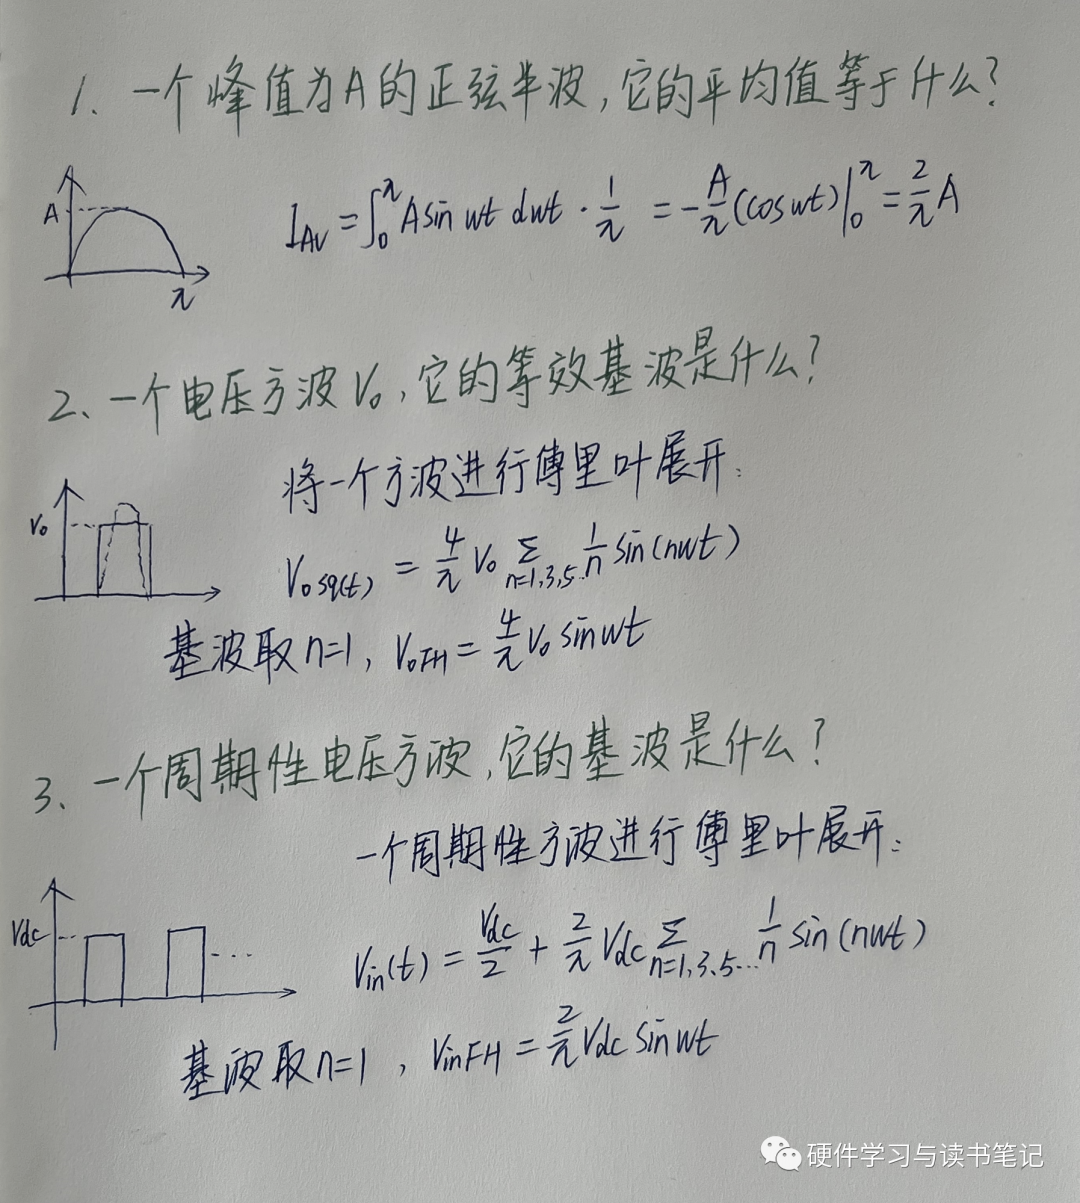 1、一个峰值为A的正弦半波,它的平均值等于什么?
A
π
I_AV = ∫₀^π A sin wt dwt · 1/π = -A/π (cos wt)|₀^π = 2/π A
2、一个电压方波 V₀,它的等效基波是什么?
将一个方波进行傅里叶展开:
V₀
V₀sq(t) = 4/π V₀ Σ n=1,3,5... 1/n sin(nwt)
基波取n=1, V₀FH = 4/π V₀ sin wt
3、一个周期性电压方波,它的基波是什么?
一个周期性方波进行傅里叶展开:
Vdc
...
Vin(t) = Vdc/2 + 2/π Vdc Σ n=1,3,5... 1/n sin(nwt)
基波取n=1, VinFH = 2/π Vdc sin wt
硬件学习与读书笔记